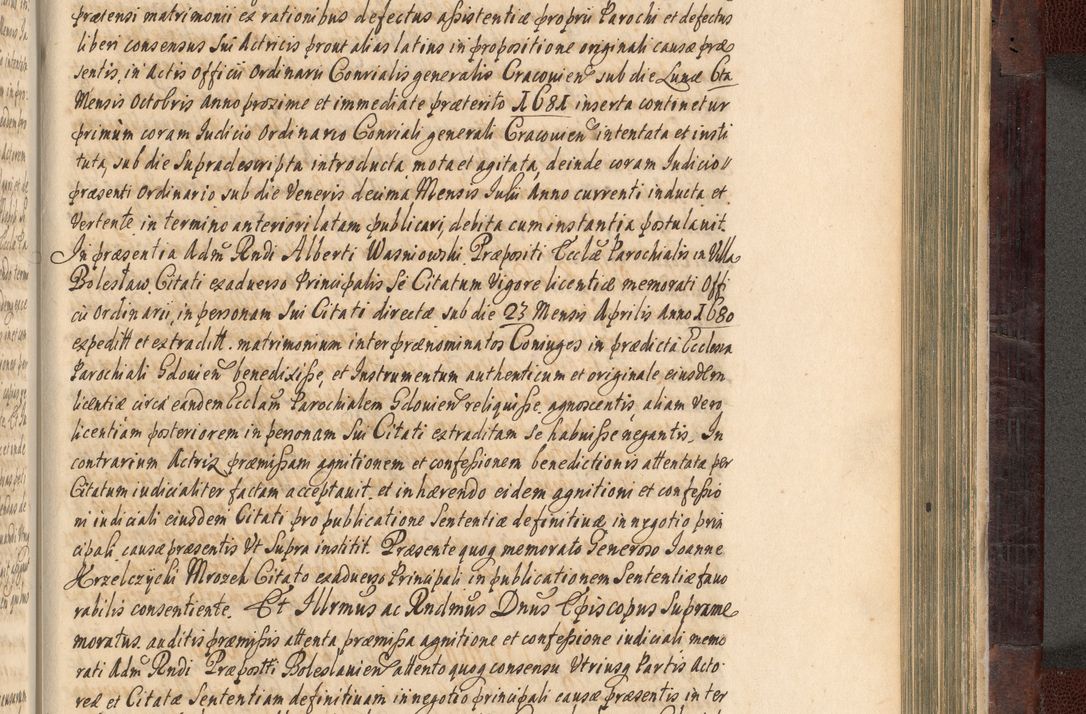 prætensi matrimonii ex rationibus defectus aſsistentiæ proprii Parochi et defectus
liberi consensus Sui Actricis prout alias latius in propositione originali causæ præ
sentis, in Actis Officii Ordinarii Conrialis generalis Cracouien sub die Lunæ 6ta
Mensis Octobris Anno proxime et immediate præterito 1681 inserta continetur
primum coram Iudicio Ordinario Conriali generali Cracouien intentata et insti
tuta, sub die Supradescripta introducta mota et agitata, deinde coram Iudicio
præsenti Ordinario sub die Veneris decima Mensis Iulii Anno currenti inducta et
Vertente in termino anteriori latam publicari, debita cum instantia postulauit.
In præsentia Adm Rndi Alberti Wasniowski Præpositi Ecclæ Parochialis in Villa
Bolesław. Citati ex aduerso Principalis Se Citatum Vigore licentiæ memorati Offi
cii Ordinarii, in personam Sui Citati directæ sub die 23 Mensis Aprilis Anno 1680
expeditt et extraditt. matrimonium inter prænominatos Coniuges in prædicta Ecclesia
Parochiali Gdouien benedixiſse, et Instrumentum authenticum et originale eiusdem
licentiæ circa eandem Ecclam Parochialem Gdouien reliquiſse agnoscentis, aliam Vero
licentiam posteriorem in personam Sui Citati extraditam Se habuiſse negantis. In
contrarium Actrix præmiſsam agnitionem et confeſsionem benedictionis attentatæ per
Citatum iudicialiter factam acceptauit, et inhærendo eidem agnitioni et confeſsio
ni iudiciali eiusdem Citati pro publicatione Sententiæ definitiuæ in negotio prin
cipali causæ præsentis Vt Supra institit. Præsente quoq memorato Generoso Ioanne
Krzelczycki Mrozek Citato ex aduerso Principali in publicationem Sententiæ fauo
rabilis consentiente. Et Illrmus ac Rndmus Dnus Episcopus Suprame
moratus auditis præmiſsis attenta præmiſsa agnitione et confeſsione iudiciali memo
rati Adm Rndi Præpostti Boleslauien attento quoq consensu Vtriusq Partis Acto
reæ et Citatæ Sententiam definitiuam in negotio principali causæ præsentis in ter